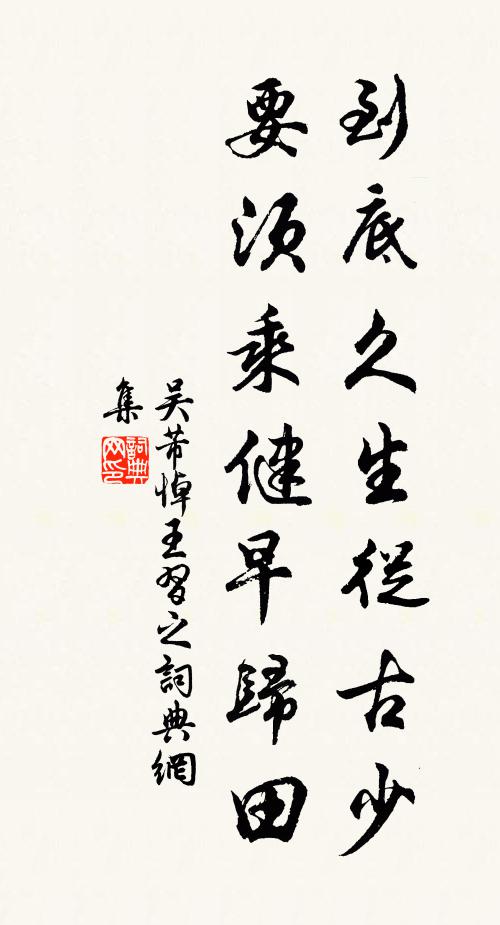 到底久生從古少
要須乘健早歸田
吳芾悼王習之詞典網
集
詞典
网印